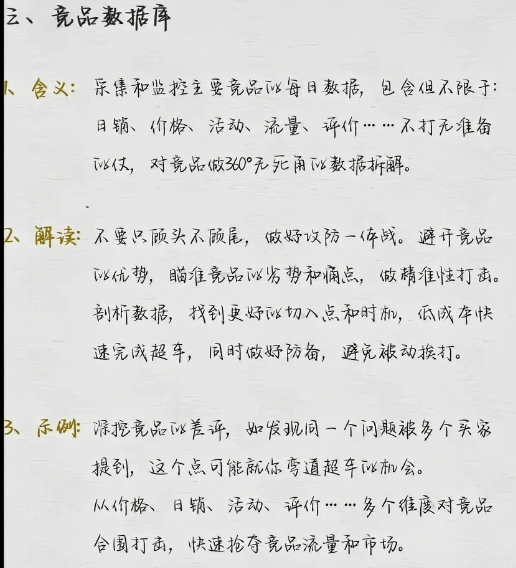 三、竞品数据库
1、含义：采集和监控主要竞品的每日数据，包含但不限于：
日销、价格、活动、流量、评价……不打无准备
的仗，对竞品做360°无死角的数据拆解。
2、解读：不要只顾头不顾尾，做好攻防一体战。避开竞品
的优势，瞄准竞品的劣势和痛点，做精准性打击。
剖析数据，找到更好的切入点和时机，低成本快
速完成超车，同时做好防备，避免被动挨打。
3、示例：深挖竞品的差评，如发现同一个问题被多个买家
提到，这个点可能就你弯道超车的机会。
从价格、日销、活动、评价……多个维度对竞品
合围打击，快速抢夺竞品流量和市场。